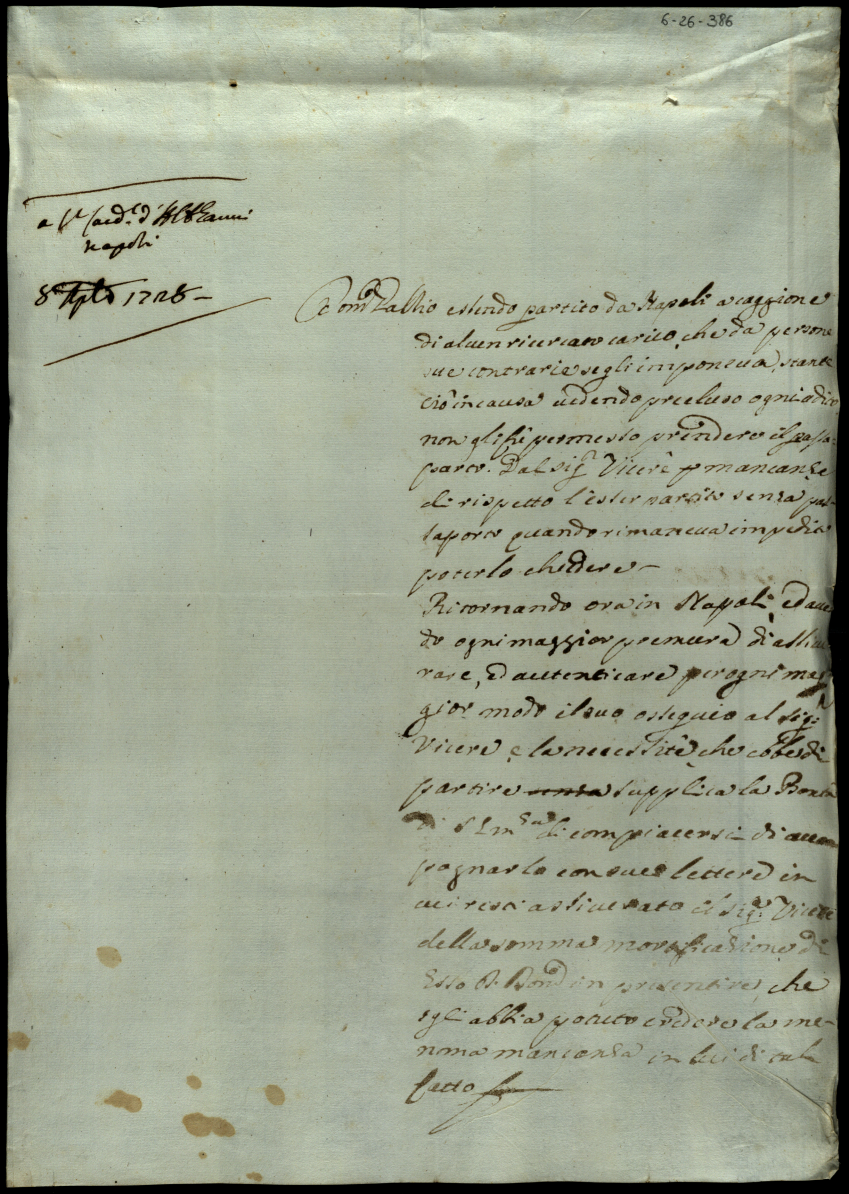 6-26-386
a Sr Card.le d'Althann
Napoli
8 Agto 1728
essendo partito da Napoli a caggione
di alcun ricercato carico, che da persone
sue contrarie se gli imponeva, stante
ciò in causa vedendo precluso ogni adito
non gli fù permesso prendere il passa-
porto. Dal Sig.r Vicerè p mancanza
di rispetto l'esser partito senza pas-
saporto quando rimaneva impedito
poterlo chiedere
Ritornando ora in Napoli, ed aven
do ogni maggior premura di assicu
rare, ed autenticare per ogni mag
gior modo il suo ossequio al Sig.r
Vicerè, e la necessità, che ebbe di
partire senza supplica la Bontà
di S Em.za di compiacersi di accom
pagnarlo con sue lettere in
cui resti assicurato il Sig.r Vicerè
della somma mortificazione di
Esso in presentire, che
egli abbia potuto credere la me-
noma mancanza in lui di tal
fatto